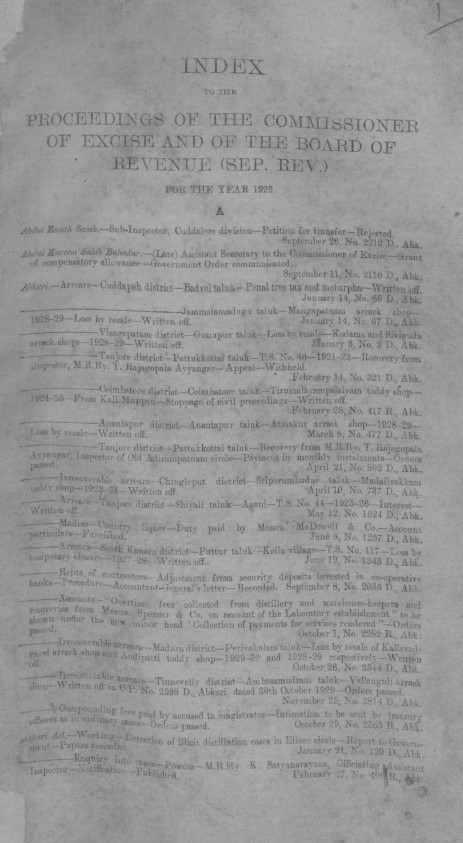 1
INDEX
TO THE
PROCEEDINGS OF THE COMMISSIONER
OF EXCISE AND OF THE BOARD OF
REVENUE (SEP. REV.)
FOR THE YEAR 1929.
A
Abdul Basith Sahib.—Sub-Inspector, Cuddalore division—Petition for transfer—Rejected.
September 26, No. 2212 D., Abk.
Abdul Kareem Sahib Bahadur.—(Late) Assistant Secretary to the Commissioner of Excise—Grant
of compensatory allowance—Government Order communicated.
September 11, No. 2110 D., Abk.
Abkari.—Arrears—Cuddapah district—Badvel taluk—Penal tree tax and moturpha—Written off.
January 14, No. 66 D., Abk.
Jammalamadugu taluk—Mangapatnam arrack shop—
1928-29—Loss by resale—Written off. January 14, No. 67 D., Abk.
Vizagapatam district—Gunupur taluk—Loss by resale—Kotama and Siviguda
arrack shops—1928-29—Written off. January 3, No. 2 D., Abk.
Tanjore district—Pattukkottai taluk—T.S. No. 40—1921-22—Recovery from
inspector, M.R.Ry. T. Rajagopala Ayyangar—Appeal—Withheld.
February 14, No. 321 D., Abk.
Coimbatore district—Coimbatore taluk—Tirumalayampalaiyam toddy shop—
1924-25—From Kali Muppan—Stoppage of civil proceedings—Written off.
February 28, No. 417 R., Abk.
Anantapur district—Anantapur taluk—Atmakur arrack shop—1928-29—
Loss by resale—Written off. March 8, No. 477 D., Abk.
Tanjore district—Pattukkottai taluk—Recovery from M.R.Ry. T. Rajagopala
Ayyangar, Inspector of Old Adirampatnam circle—Payment in monthly instalments—Orders
passed. April 21, No. 502 D., Abk.
Irrecoverable arrears—Chingleput district—Sriperumbudur—Madalipakkam
toddy shop—1923-24—Written off. April 10, No. 737 D., Abk.
Arrears—Tanjore district—Shiyali taluk—Agani—T.S. No. 44—1925-26—Interest—
Written off. May 12, No. 1024 D., Abk.
Madras—Country liquor—Duty paid by Messrs. McDowell & Co.—Account
particulars—Furnished. June 8, No. 1257 D., Abk.
Arrears—South Kanara district—Puttur taluk—Koila village—T.S. No. 117—Loss by
temporary closure—1927-28—Written off. June 19, No. 1345 D., Abk.
Rents of contractors—Adjustment from security deposits invested in co-operative
banks—Procedure—Accountant-General's letter—Recorded. September 8, No. 2035 D., Abk.
Accounts—"Overtime fees collected from distillery and warehouse-keepers and
recoveries from Messrs. Spencer & Co. on account of the Laboratory establishment" to be
shown under the new minor head "Collection of payments for services rendered"—Orders
passed. October 1, No. 2282 R., Abk.
Irrecoverable arrears—Madura district—Periyakulam taluk—Loss by resale of
arrack shop and Andipatti toddy shop—1929-30 and 1928-29 respectively—Written
off. October 26, No. 2544 D., Abk.
Irrecoverable arrears—Tinnevelly district—Ambasamudram taluk—Vellanguli arrack
shop—Written off in C.P. No. 2598 D., Abkari, dated 30th October 1929—Orders passed.
November 25, No. 2814 D., Abk.
Compounding fees paid by accused to magistrates—Intimation to be sent by treasury
officers as in ordinary cases—Orders passed. October 29, No. 2565 R., Abk.
Abkari Act.—Working—Detection of illicit distillation cases in Ellore circle—Report to Govern-
ment—Papers recorded. January 21, No. 129 D., Abk.
Enquiry into cases—Powers—M.R.Ry. K. Satyanarayana, Officiating Assistant
Inspector—Notification—Published. February 27, No. R., Abk.